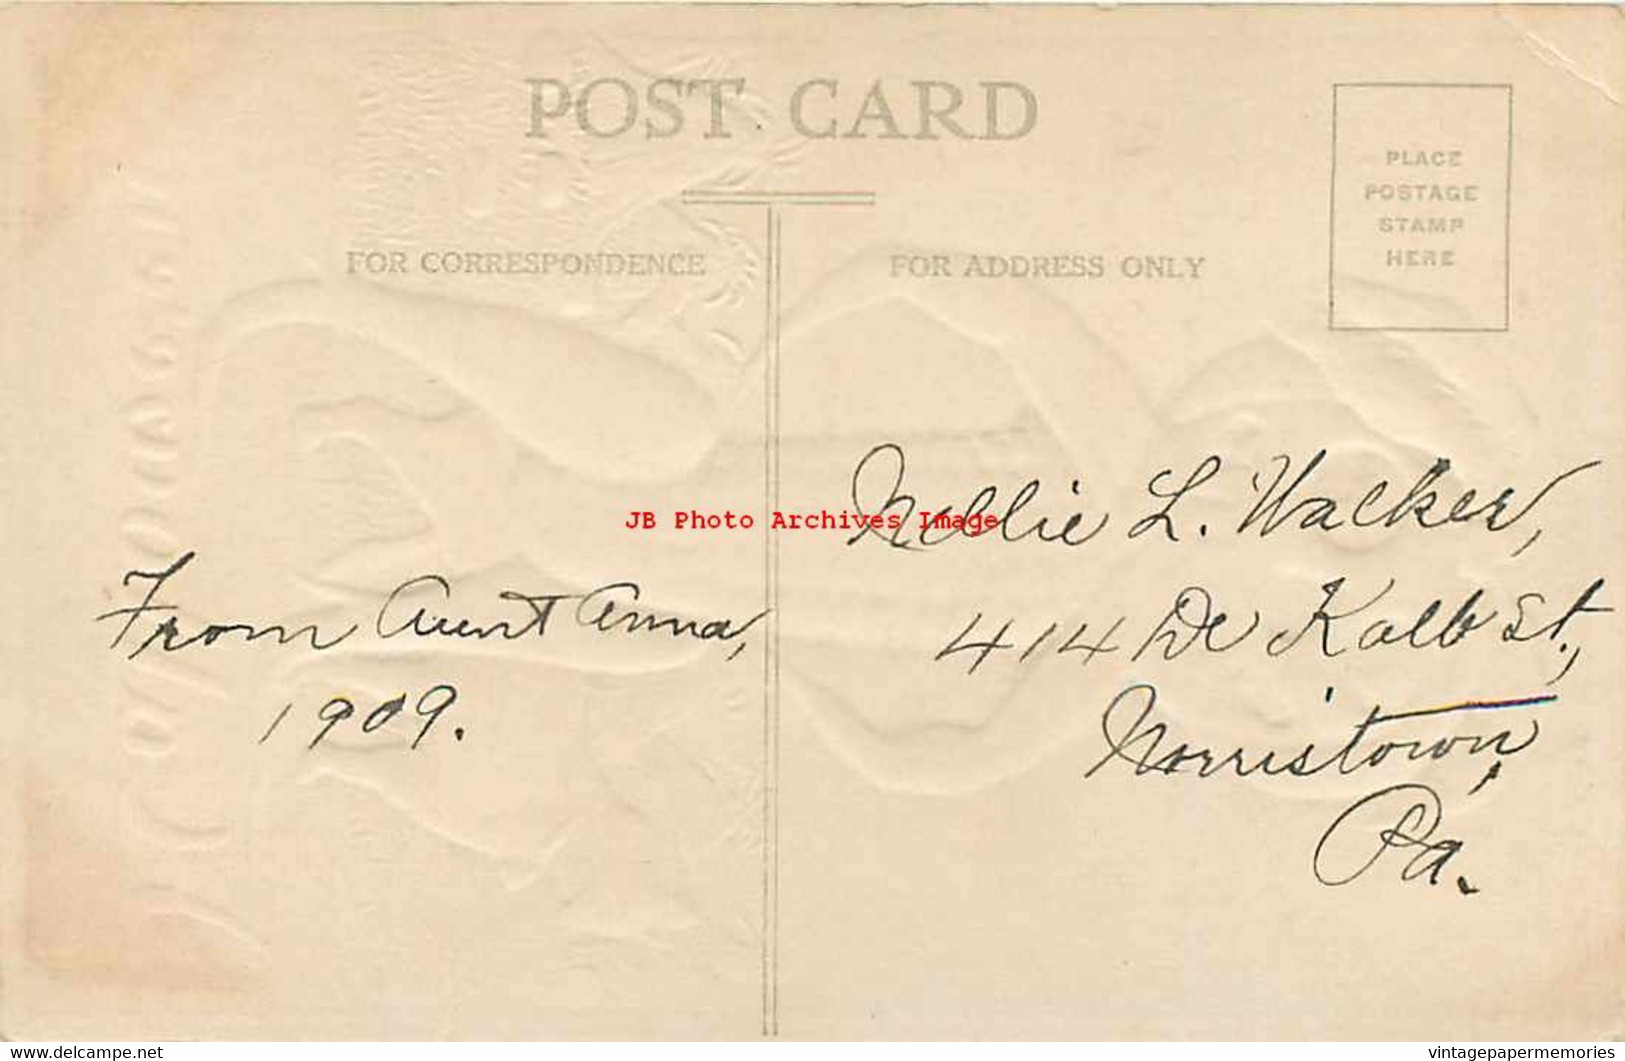 POST CARD
PLACE
POSTAGE
STAMP
HERE
FOR CORRESPONDENCE
FOR ADDRESS ONLY
JB Photo Archives Image
From Aunt Anna,
1909.
Nellie L. Walker,
414 De Kalb St.,
Norristown,
Pa.
www.delcampe.net
vintagepapermemories